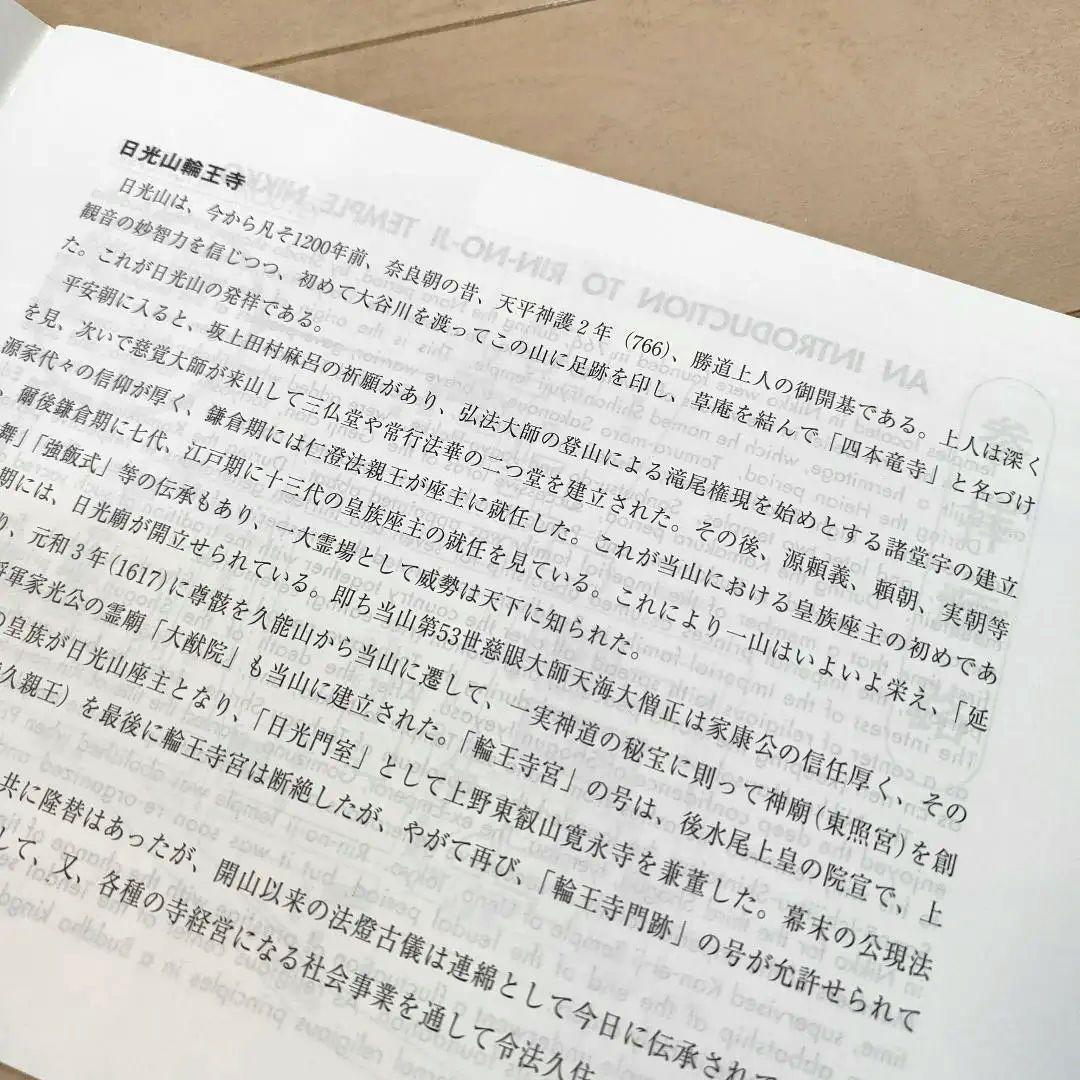 日光山輪王寺
日光山は、今から凡そ1200年前、奈良朝の昔、天平神護2年 (766)、勝道上人の御開基である。上人は深く
観音の妙智力を信じつつ、初めて大谷川を渡ってこの山に足跡を印し、草庵を結んで「四本竜寺」と名づけ
た。これが日光山の発祥である。
平安朝に入ると、坂上田村麻呂の祈願があり、弘法大師の登山による滝尾権現を始めとする諸堂宇の建立
を見、次いで慈覚大師が来山して三仏堂や常行法華の二つ堂を建立された。その後、源頼義、頼朝、実朝等
源家代々の信仰が厚く、鎌倉期には仁澄法親王が座主に就任した。これが当山における皇族座主の初めであ
。爾後鎌倉期に七代、江戸期に十三代の皇族座主の就任を見ている。これにより一山はいよいよ栄え、「延
舞」「強飯式」等の伝承もあり、一大霊場として威勢は天下に知られた。
期には、日光廟が開立せられている。即ち当山第53世慈眼大師天海大僧正は家康公の信任厚く、その
り、元和3年(1617)に尊骸を久能山から当山に遷して、一実神道の秘宝に則って神廟(東照宮)を創
将軍家光公の霊廟「大猷院」も当山に建立された。「輪王寺宮」の号は、後水尾上皇の院宣で、上
の皇族が日光山座主となり、「日光門室」として上野東叡山寛永寺を兼董した。幕末の公現法
久親王）を最後に輪王寺宮は断絶したが、やがて再び、「輪王寺門跡」の号が允許せられて
共に隆替はあったが、開山以来の法燈古儀は連綿として今日に伝承されて
して、又、各種の寺経営になる社会事業を通して令法久住